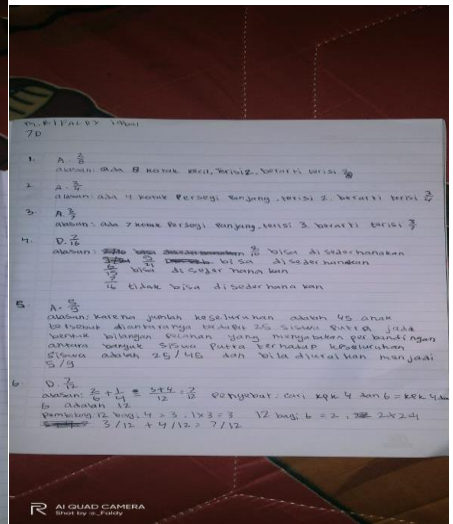 M. RIFALDY Iqbal
7D
1. A. 2/8
alasan: ada 8 kotak kecil, terisi 2, berarti terisi 2/8
2. A.
alasan: ada 4 kotak Persegi Panjang, terisi 2, berarti terisi
3. A. 3/7
alasan: ada 7 kotak Persegi Panjang, terisi 3, berarti terisi 3/7
4. D. 7/16
alasan: bisa di sederhanakan
bisa di sederhanakan
bisa di seder hana kan
tidak bisa di seder hana kan
5. A. 5/9
alasan: karena jumlah keseluruhan adalah 45 anak
tersebut diantaranya terdapat 25 siswa Putra jadi
bentuk bilangan Pecahan yang menyatakan perbandingan
antara banyak siswa Putra terhadap keseluruhan
siswa adalah 25/45 dan bila diuraikan menjadi
5/9
6. D. 7/12
alasan: 2/6 + 1/4 = 3+4/12 = 7/12 Penyebut: cari KPK 4 dan 6 = KPK 4 dan
6 adalah 12
Pembilang: 12 bagi 4 = 3, 1x3 = 3 12 bagi 6 = 2,
3/12 + 4/12 = 7/12
AI QUAD CAMERA
Shot by :_Faldy